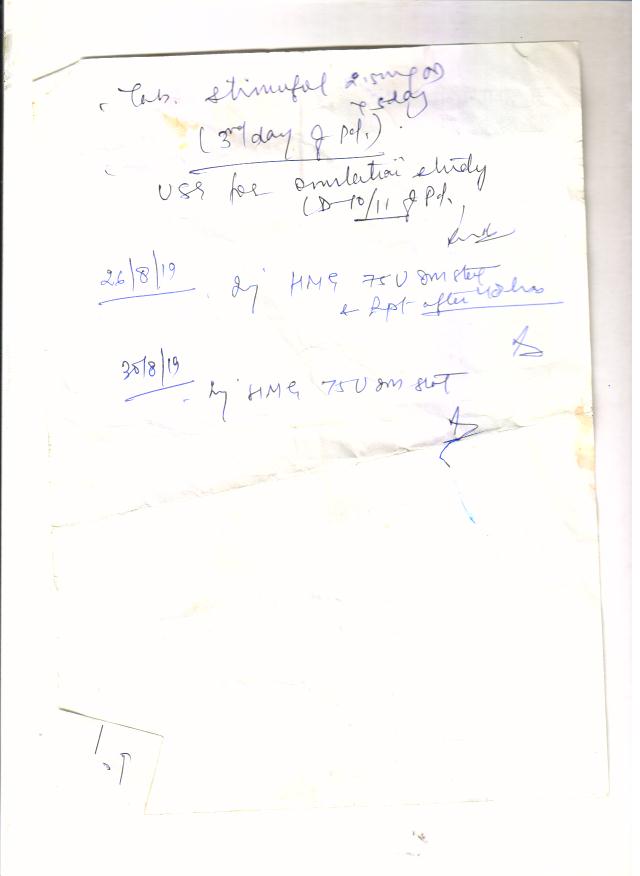 Tab. Stimufol 2.5mg OD
x 5day
(3rd day of Pd.)
USG for ovulation study
(D-10/11 of Pd.
26/8/19 Inj HMG 75U Im stat
& Rpt after 48 hrs
30/8/19
Inj HMG 75U Im stat